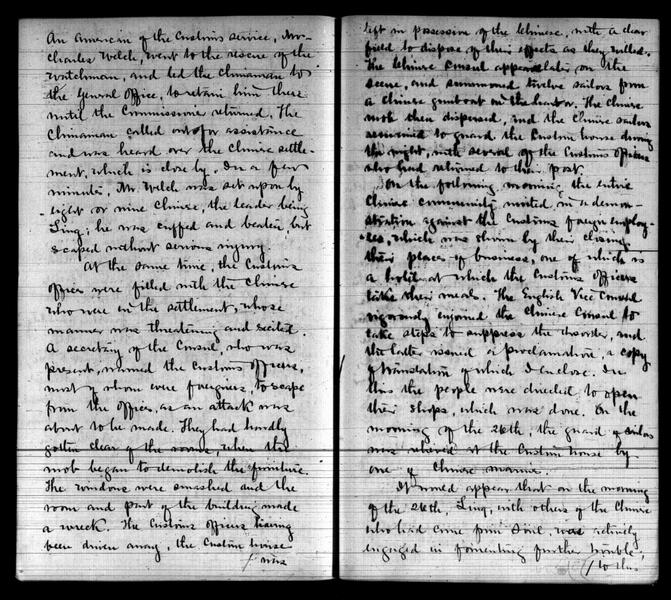 An American of the Customs service, Mr.
Charles Welch, went to the rescue of the
watchman, and led the Chinaman to
the General Office, to retain him there
until the Commissioner returned. The
Chinaman called out for assistance
and was heard over the Chinese settle-
ment, which is close by. In a few
minutes, Mr. Welch was set upon by
eight or nine Chinese, the leader being
Ling; he was cuffed and beaten, but
escaped without serious injury.
At the same time, the Customs
offices were filled with the Chinese
who were in the settlement, whose
manner was threatening and excited.
A secretary of the Consul, who was
present, warned the Customs Officers,
most of whom were foreigners, to escape
from the office, as an attack was
about to be made. They had hardly
gotten clear of the rooms, when the
mob began to demolish the furniture.
The windows were smashed and the
room and part of the building made
a wreck. The Customs officers having
been driven away, the Custom house
was
left in possession of the Chinese, with a clear
field to dispose of their effects as they willed.
The Chinese Consul appeared later on the
scene, and summoned twelve sailors from
a Chinese gunboat in the harbor. The Chinese
mob then dispersed, and the Chinese sailors
remained to guard the Custom house during
the night, with several of the Customs officers
who had returned to their post.
On the following morning the entire
Chinese community united in a demon-
stration against the Customs foreign employ-
ees, which was shown by their closing
their places of business, one of which is
a hotel at which the Customs officers
take their meals. The English Vice Consul
vigorously enjoined the Chinese Consul to
take steps to suppress the disorder, and
the latter issued a proclamation, a copy
of translation of which I enclose. In
this the people were directed to open
their shops, which was done. On the
morning of the 26th, the guard of sailors
was relieved at the Custom house by
one of Chinese marines.
It would appear that on the morning
of the 24th, Ling, with others of the Chinese
who had come from Soul, was actively
engaged in fomenting further trouble,
to the